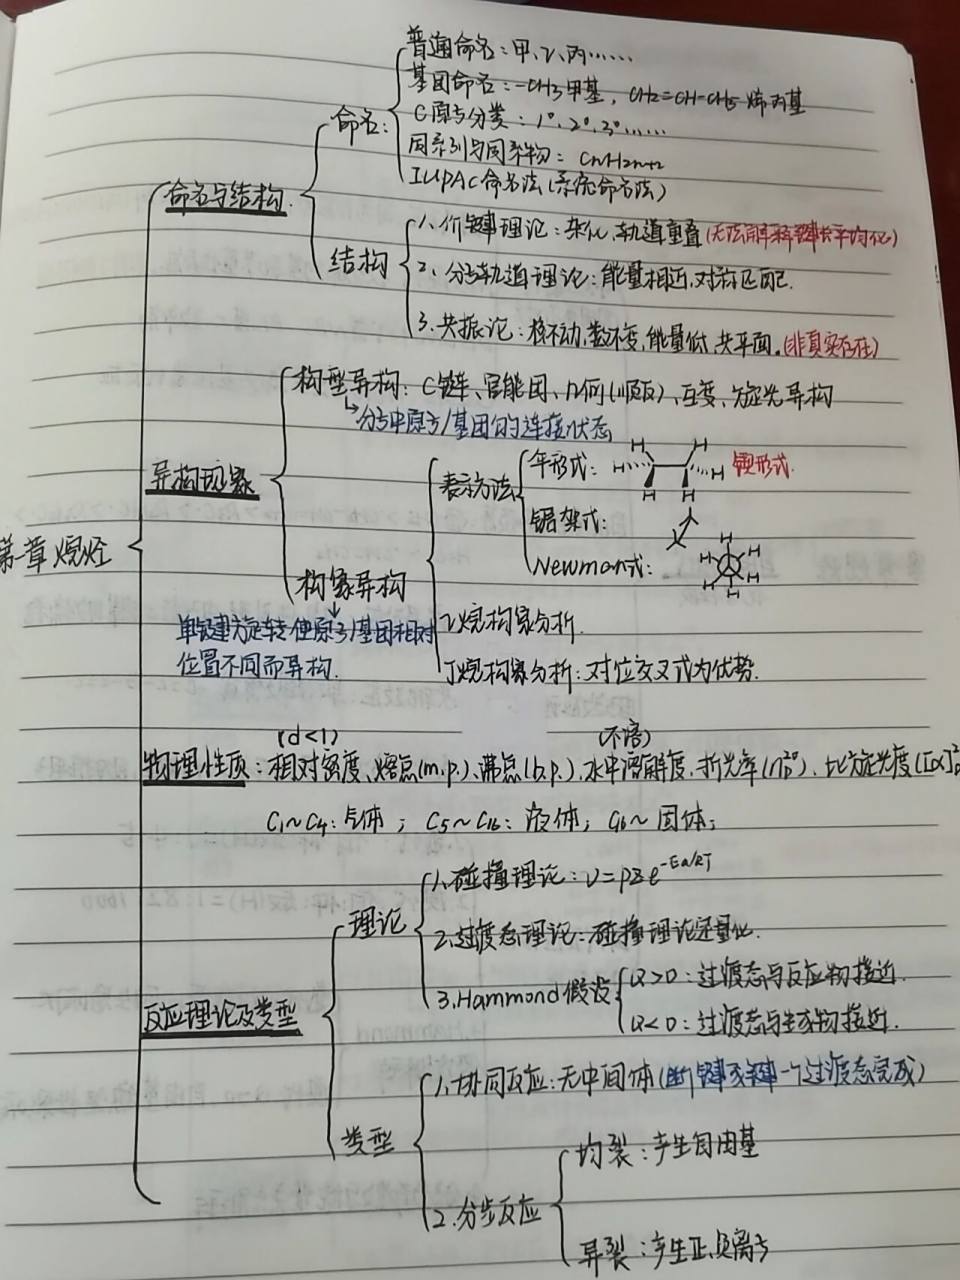 普通命名：甲、乙、丙……
基团命名：-CH3甲基，CH2=CH-CH3 烯丙基
命名：
C原子分类：1°, 2°, 3°……
同系列与同系物：CnH2n+2
IUPAC命名法(系统命名法)
命名与结构
1、价键理论：杂化、轨道重叠(无法解释键长平均化)
结构
2、分子轨道理论：能量相近,对称匹配.
3.共振论：核不动,数不变,能量低,共平面.(非真实存在)
构型异构：C链、官能团、几何(顺反)、互变、旋光异构
↳分子中原子/基团的连接状态
异构现象
表示方法
伞形式：
H H H H H H
锲形式.
第一章 烷烃
锯架式：
Newman式：
H H H H H H
构象异构
单键旋转使原子/基团相对
位置不同而异构.
乙烷构象分析.
丁烷构象分析：对位交叉式为优势.
(d<1)
(不溶)
物理性质：相对密度、熔点(m.p.)、沸点(b.p.)、水中溶解度、折光率(nD20)、比旋光度([α]
C1~C4：气体；C5~C16：液体；C16~固体；
1.碰撞理论：υ=PZe-Ea/RT
理论
2.过渡态理论：碰撞理论定量化.
3.Hammond假设
Q>0：过渡态与反应物接近.
Q<0：过渡态与生成物接近.
反应理论及类型
1.协同反应：无中间体(断键成键一个过渡态完成)
类型
均裂：产生自由基
2.分步反应
异裂：产生正,负离子